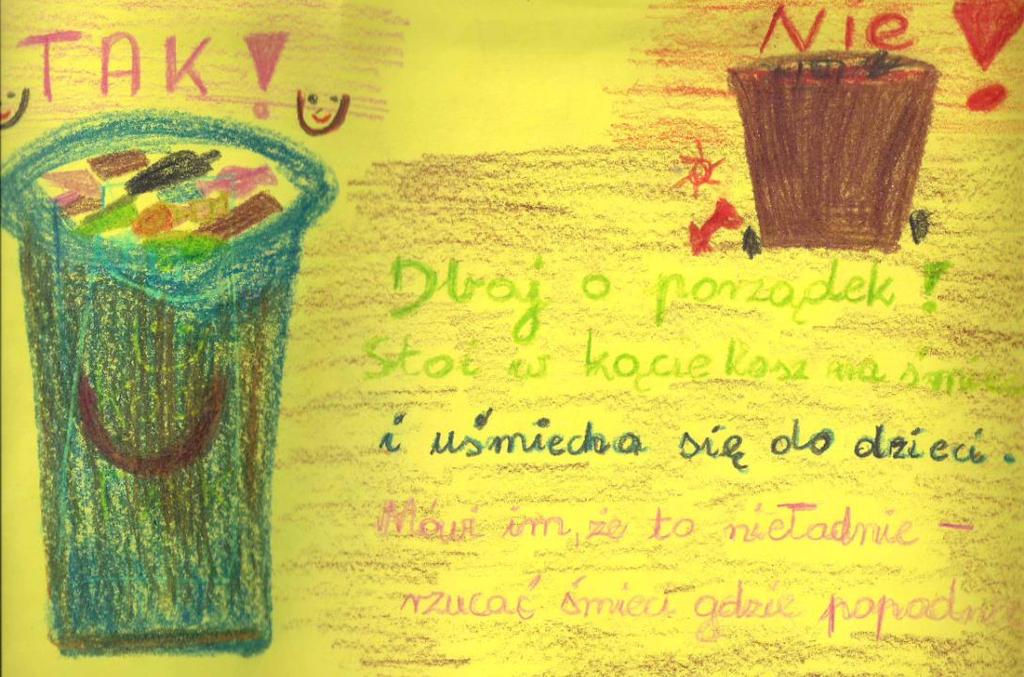 TAK!
Nie!
Dbaj o porządek!
Stoi w kącie kosz na
i uśmiecha się do dzieci.
Mówi im, że to nieładnie -
rzucać śmieci gdzie